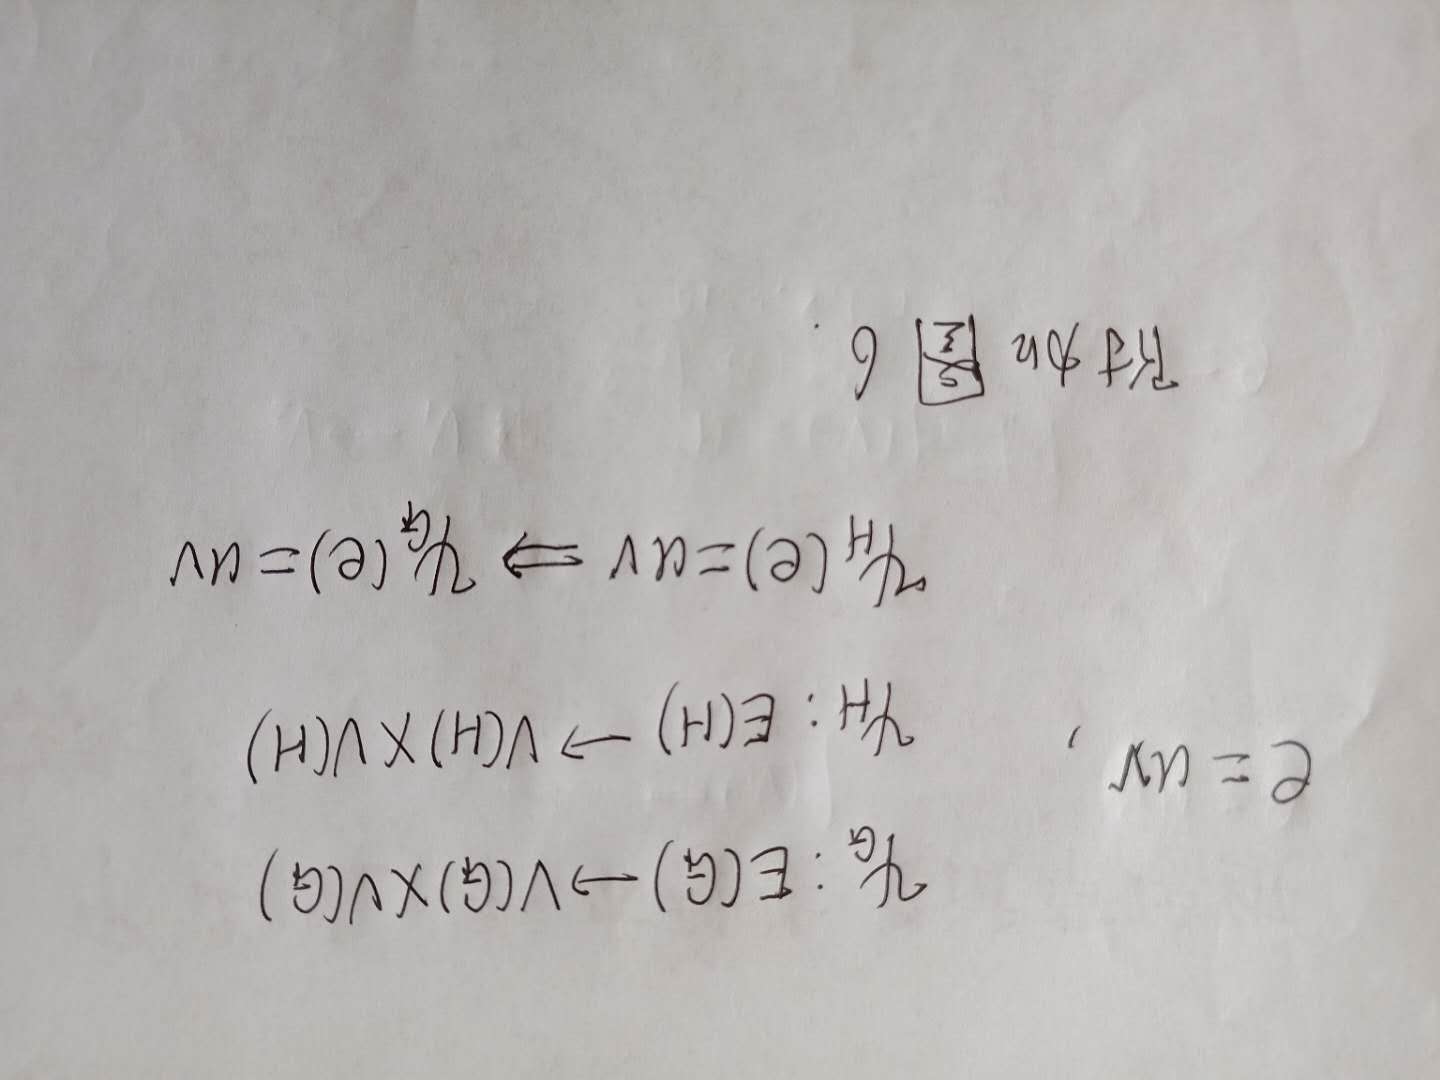 ψ_G : E(G) → V(G) × V(G)
e = uv ,
ψ_H : E(H) → V(H) × V(H)
ψ_H (e) = uv ⇒ ψ_G (e) = uv
附加图 6 .